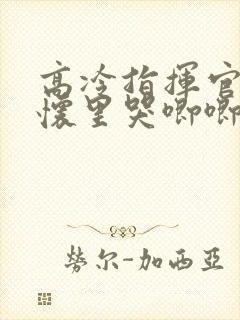 高冷指揮官
懷里哭唧唧
勞尔-加西亞